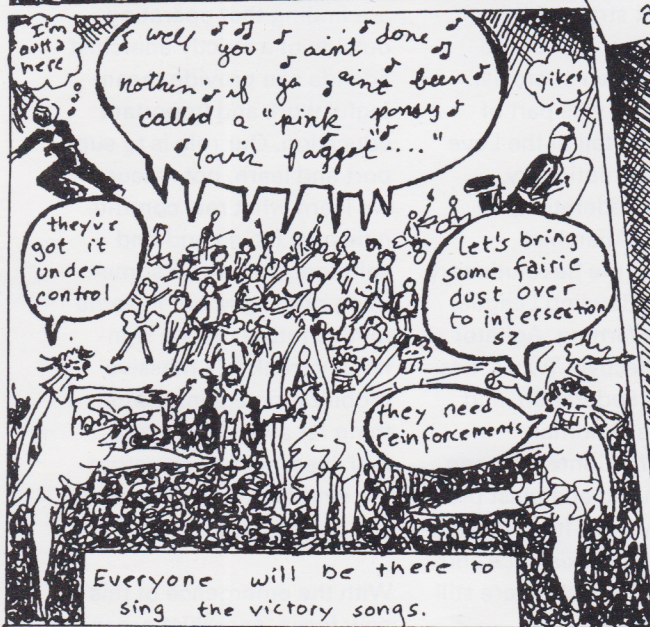 I'm
outta
here
well you ain't done
nothin' if ya ain't been
called a "pink pansy
lovin' faggot"...."
yikes
they've
got it
under
control
Let's bring
some fairie
dust over
to intersection
52
they need
reinforcements
Everyone will be there to
sing the victory songs.